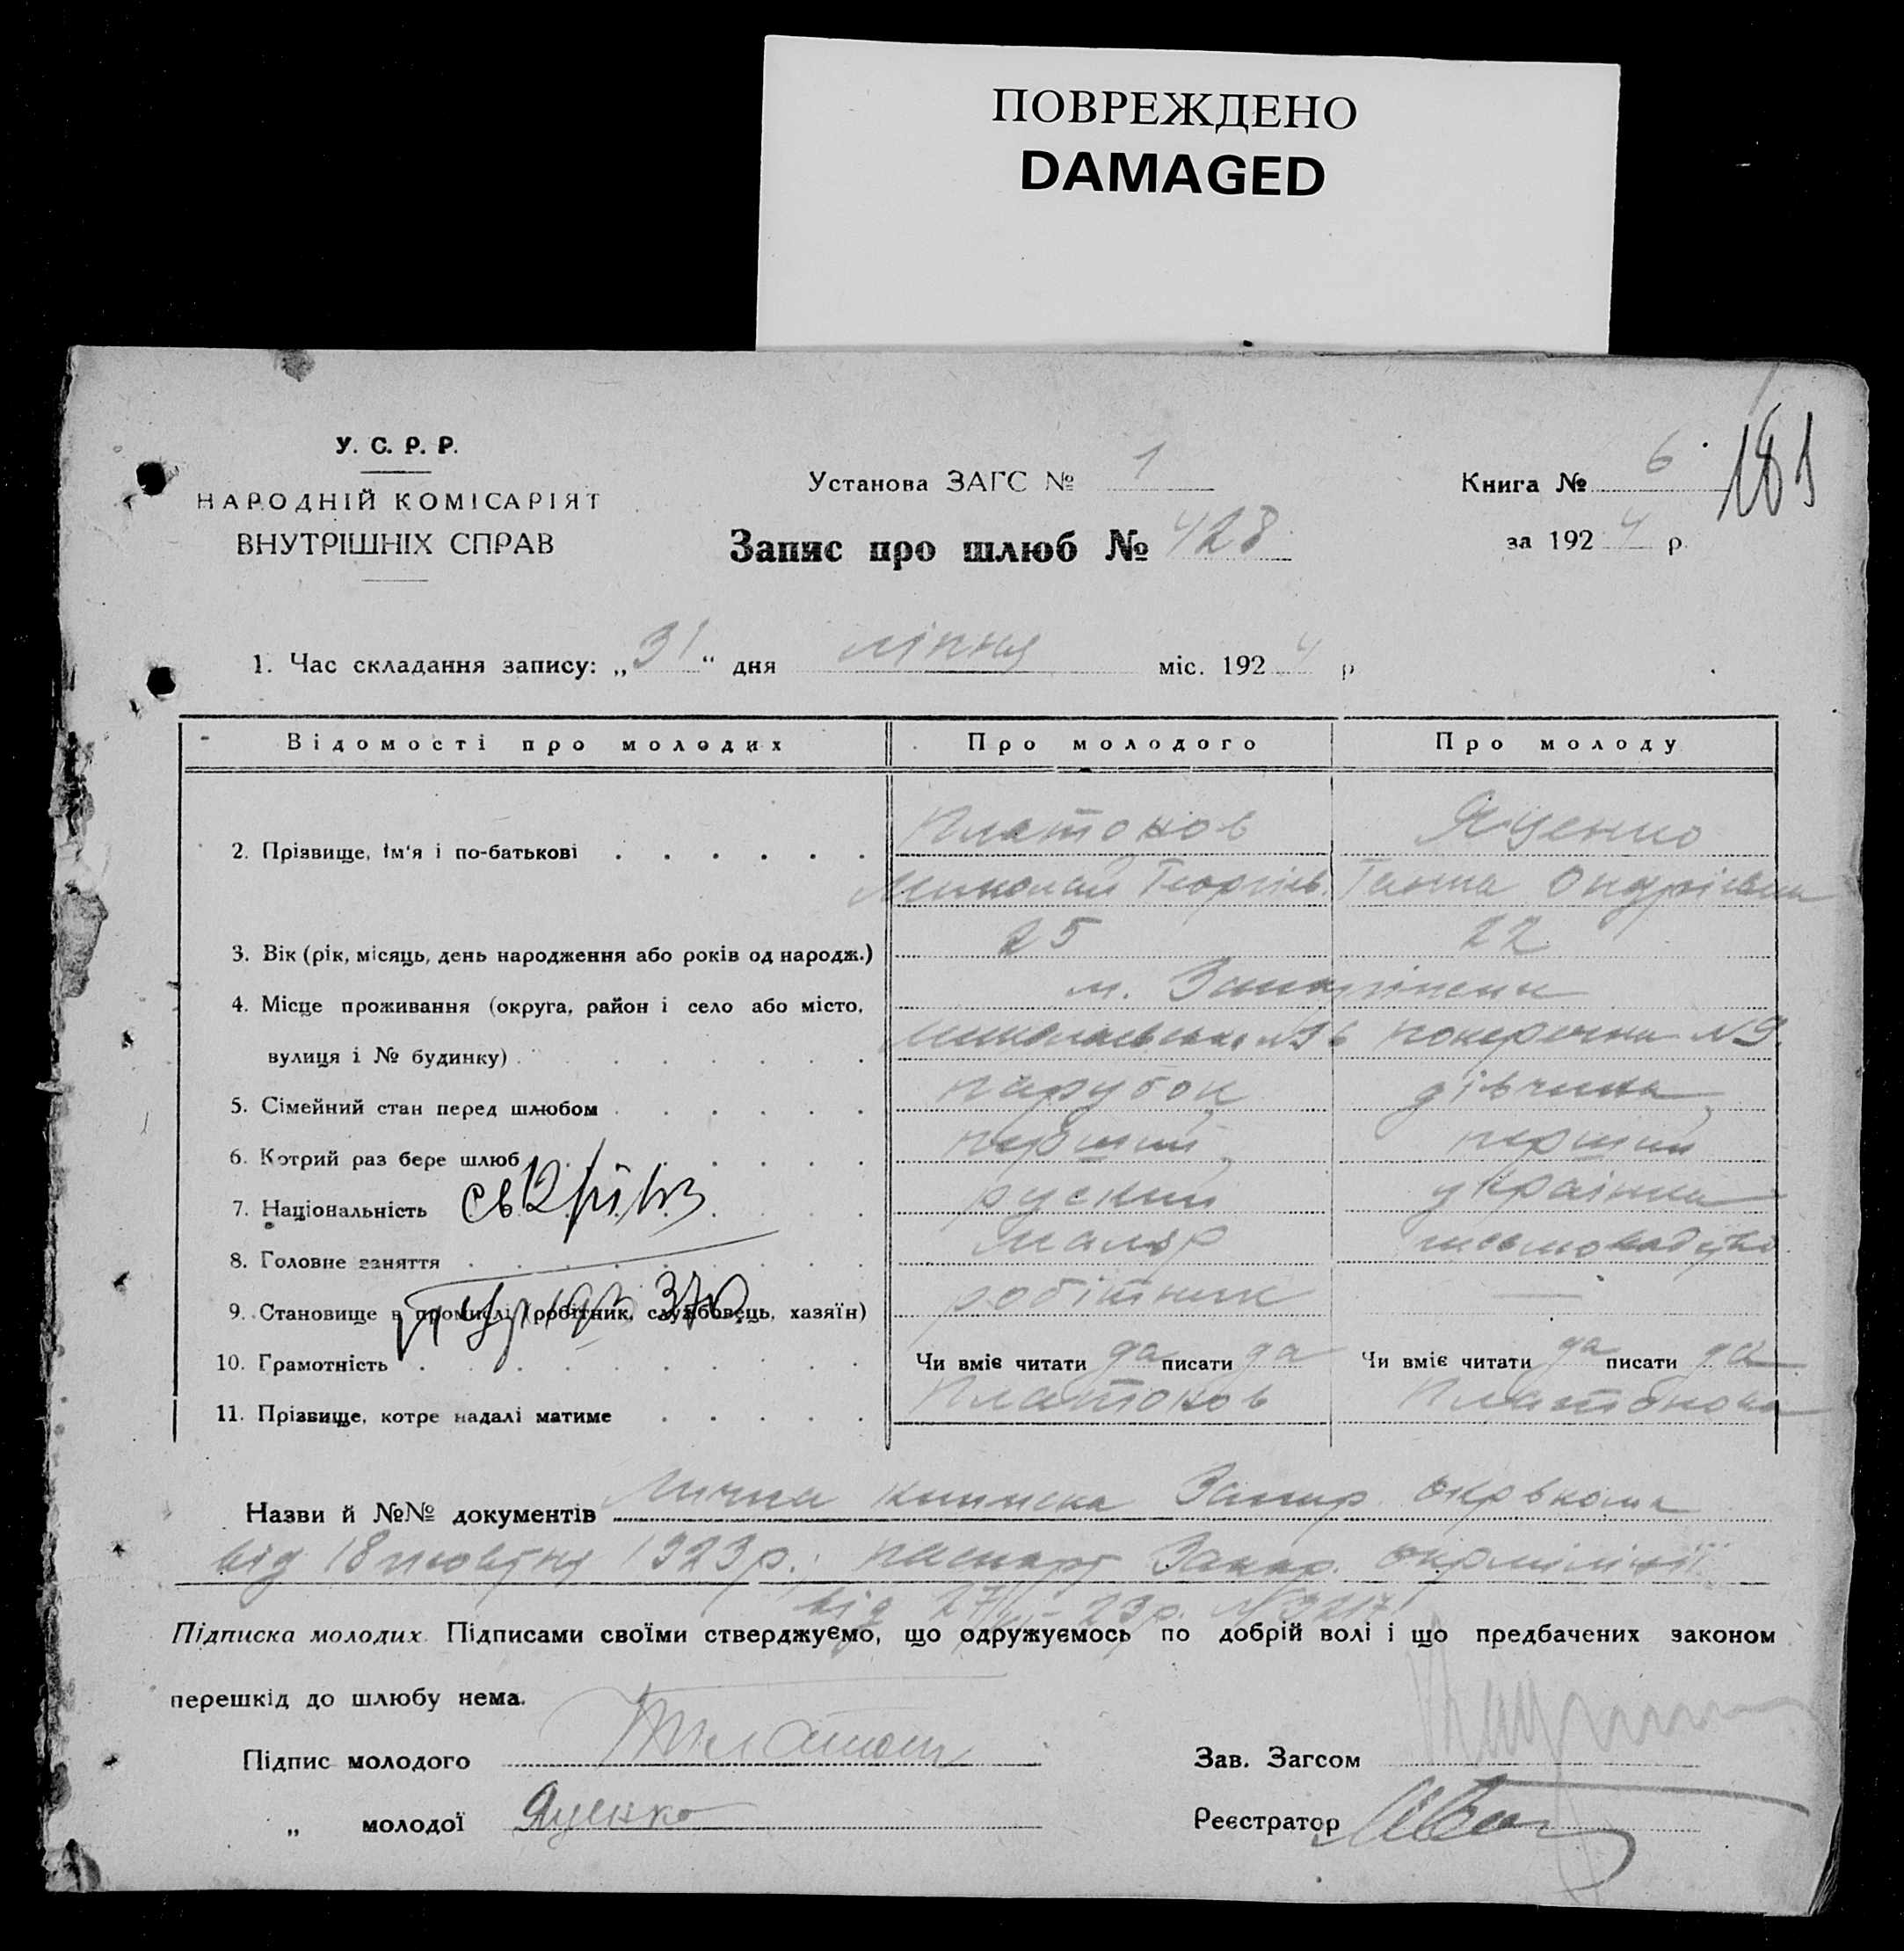 ПОВРЕЖДЕНО
DAMAGED
У. С. Р. Р.
НАРОДНІЙ КОМІСАРІЯТ
ВНУТРІШНІХ СПРАВ
Установа ЗАГС № 1
Запис про шлюб № 428
Книга № 6
за 1924 р.
181
1. Час складання запису: „31“ дня ліпня міс. 1924 р
Відомості про молодих Про молодого Про молоду
2. Прізвище, ім'я і по-батькові Платонов Яценко
Миколай Георгіев. Ганна Ондріівна
3. Вік (рік, місяць, день народження або років од народж.) 25 22
4. Місце проживання (округа, район і село або місто, м.
вулиця і № будинку) поперечна №9.
5. Сімейний стан перед шлюбом парубок дівчина
6. Котрий раз бере шлюб перший перший
7. Національність руский українка
8. Головне заняття маляр
9. Становище в промислі (робітник, службовець, хазяїн) робітник —
10. Грамотність Чи вміє читати да писати да Чи вміє читати да писати да
11. Прізвище, котре надалі матиме Платонов Платонова
Назви й №№ документів Запор. окрвкома
від 18 жовтня 1923 р. паспорт Запор. окрміліції
від 27/ - 23 р. № 3217
Підписка молодих. Підписами своїми стверджуємо, що одружуємось по добрій волі і що предбачених законом
перешкід до шлюбу нема.
Підпис молодого Платон
Зав. Загсом
„ молодої Яценко
Реєстратор